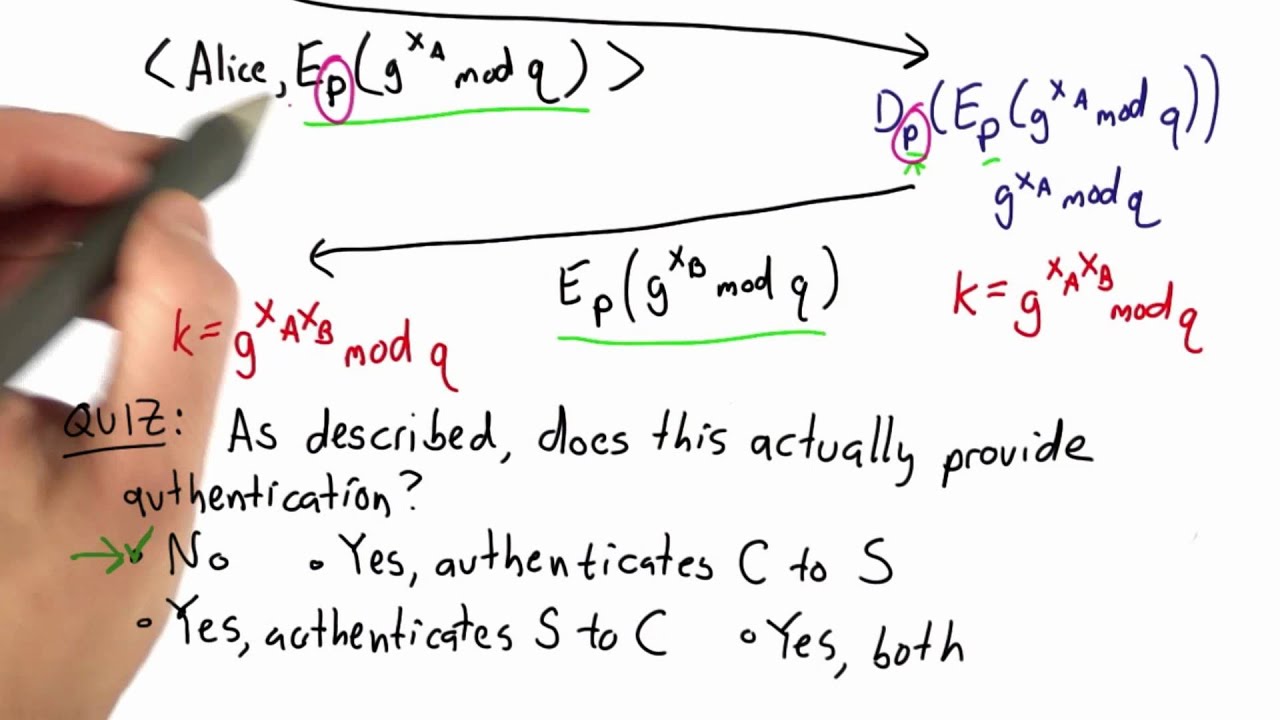 <Alice, E_P(g^{x_A} mod q)>
D_P(E_P(g^{x_A} mod q))
g^{x_A} mod q
E_P(g^{x_B} mod q)
k = g^{x_A x_B} mod q
k = g^{x_A x_B} mod q
QUIZ: As described, does this actually provide
authentication?
• No • Yes, authenticates C to S
• Yes, authenticates S to C • Yes, both